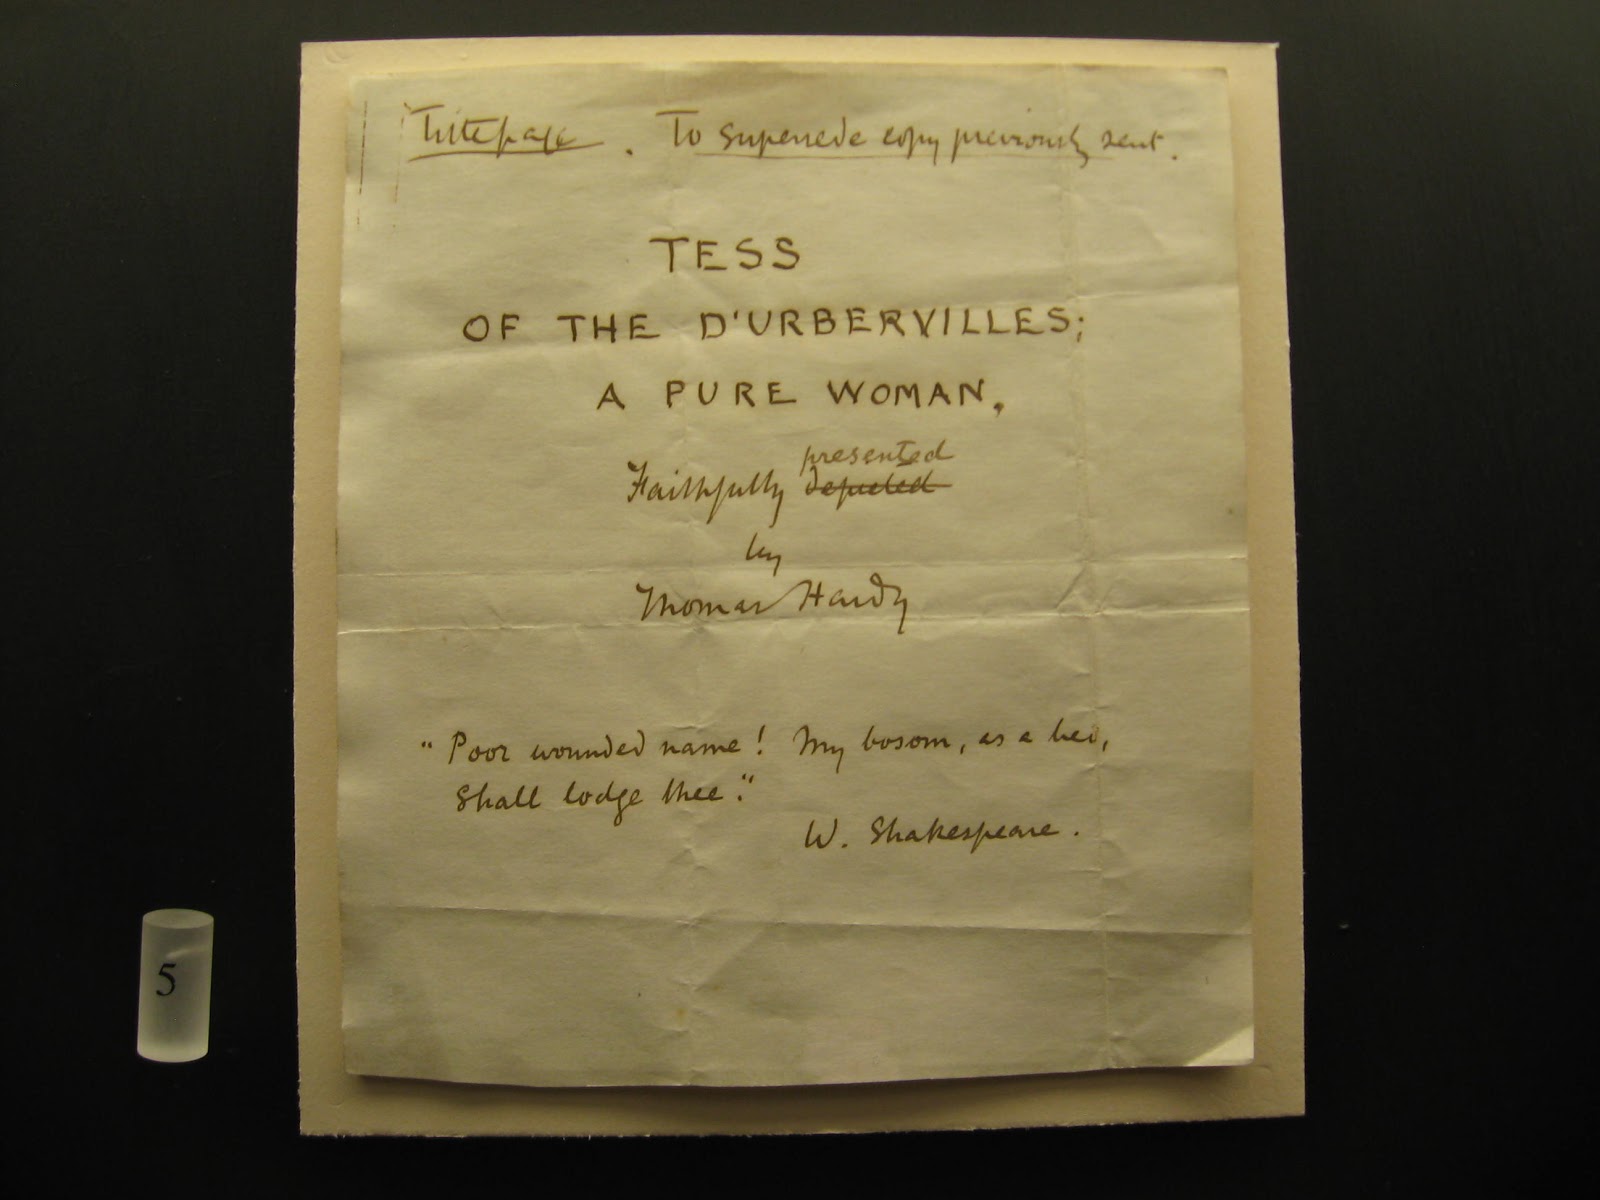 Titlepage. To supersede copy previously sent.
TESS
OF THE D'URBERVILLES;
A PURE WOMAN,
presented
Faithfully depicted
by
Thomas Hardy
"Poor wounded name! My bosom, as a bed,
Shall lodge thee."
W. Shakespeare.
5